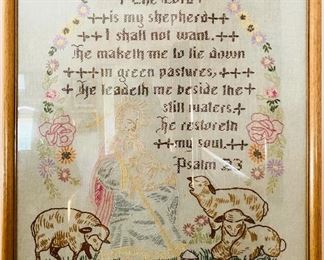 The Lord
is my shepherd
I shall not want.
he maketh me to lie down
in green pastures,
he leadeth me beside the
still waters.
he restoreth
my soul.
Psalm 23